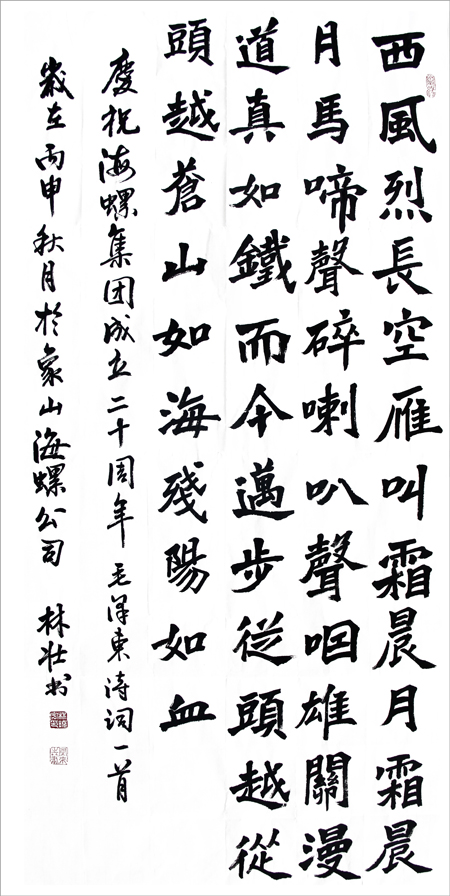 西風烈長空雁叫霜晨月霜晨
月馬啼聲碎喇叭聲咽雄關漫
道真如鐵而今邁步從頭越從
頭越蒼山如海殘陽如血
慶祝海螺集团成立二十周年 毛泽東诗词一首
歲在丙申秋月於象山海螺公司 林壮书